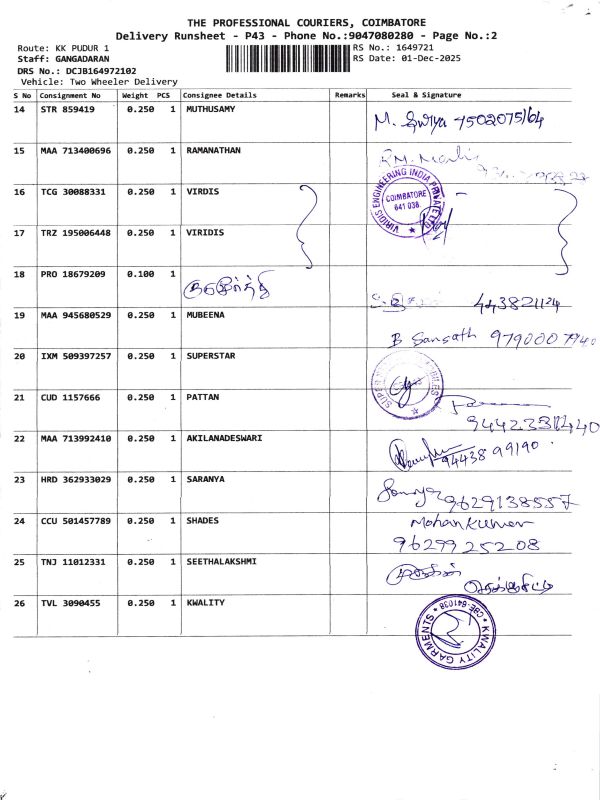 THE PROFESSIONAL COURIERS, COIMBATORE
Delivery Runsheet - P43 - Phone No.:9047080280 - Page No.:2
Route: KK PUDUR 1
RS No.: 1649721
Staff: GANGADARAN
RS Date: 01-Dec-2025
DRS No.: DCJB164972102
Vehicle: Two Wheeler Delivery
S No Consignment No Weight PCS Consignee Details Remarks Seal & Signature
14 STR 859419 0.250 1 MUTHUSAMY
15 MAA 713400696 0.250 1 RAMANATHAN
16 TCG 30088331 0.250 1 VIRDIS
VIRIDIS ENGINEERING INDIA PRIVATE LTD
COIMBATORE
641 038.
17 TRZ 195006448 0.250 1 VIRIDIS
18 PRO 18679209 0.100 1
19 MAA 945680529 0.250 1 MUBEENA
20 IXM 509397257 0.250 1 SUPERSTAR
21 CUD 1157666 0.250 1 PATTAN
22 MAA 713992410 0.250 1 AKILANADESWARI
94438 99190.
23 HRD 362933029 0.250 1 SARANYA
9629138557
24 CCU 501457789 0.250 1 SHADES Mohankumar
96299 25208
25 TNJ 11012331 0.250 1 SEETHALAKSHMI
26 TVL 3090455 0.250 1 KWALITY
KWALITY GARMENTS * CBE-641038 *